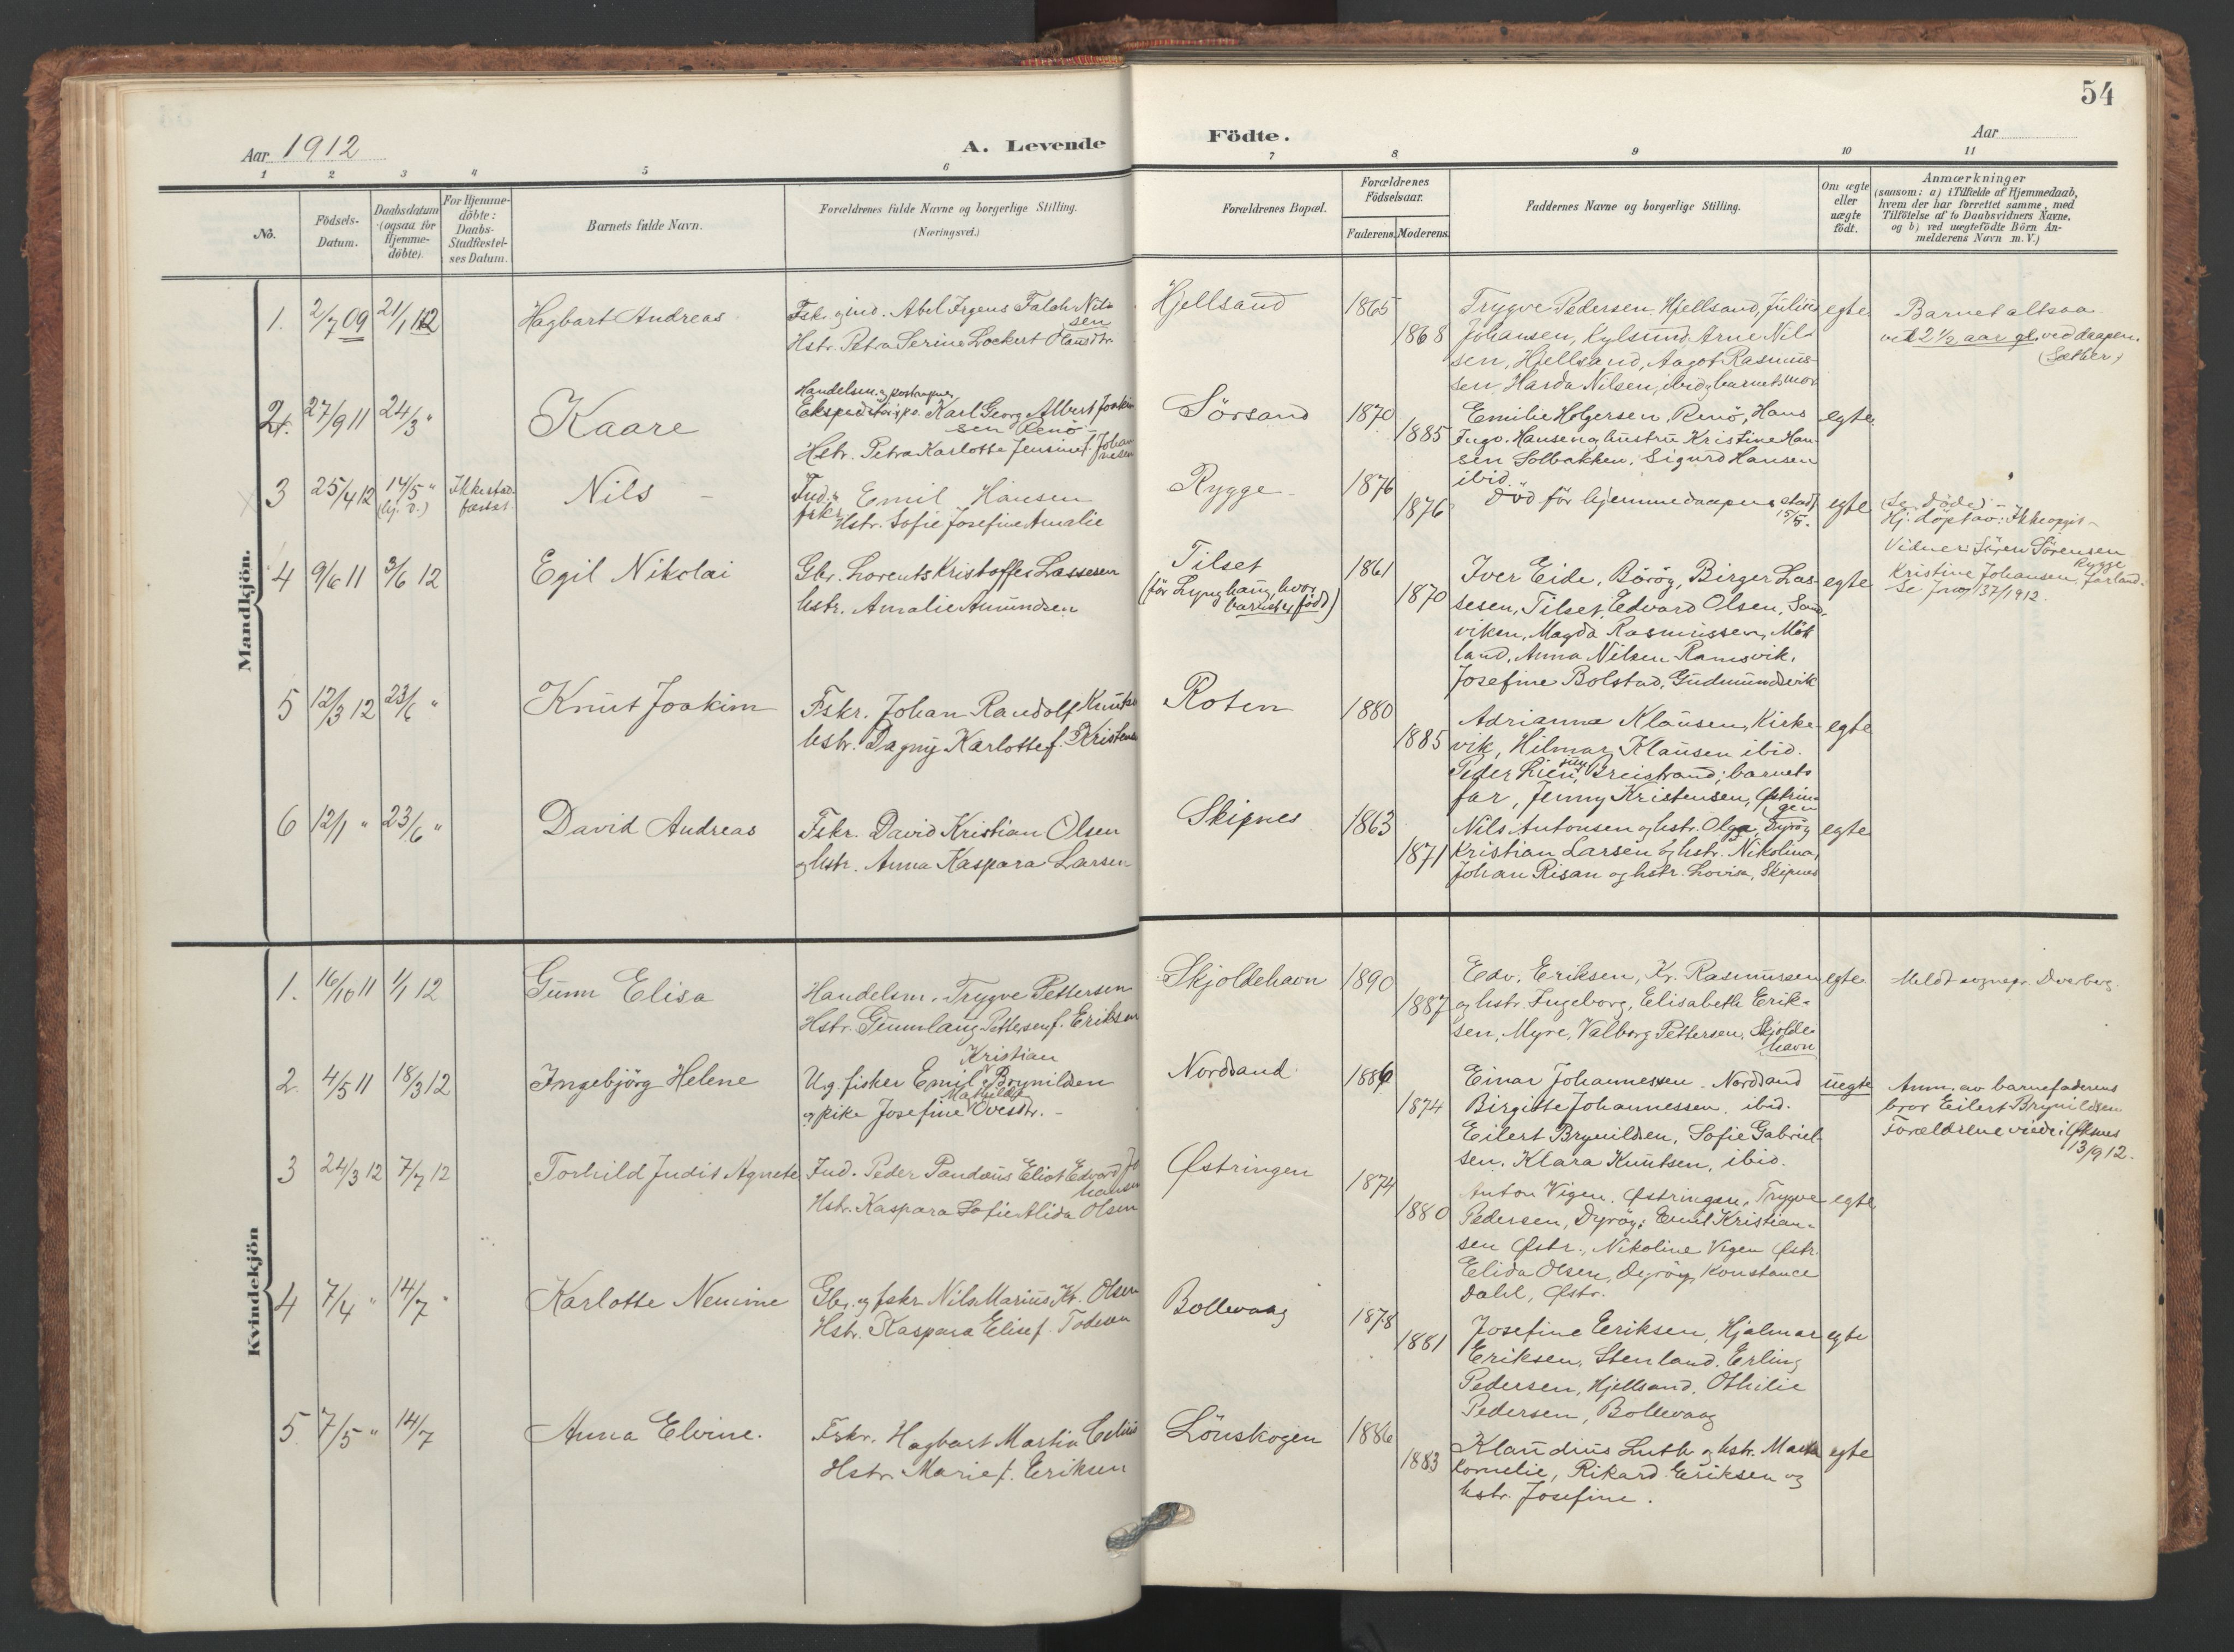 54
Aar 1912
A. Levende
Födte.
Aar
1 2 3 4 5 6 7 8 9 10 11
No.
Födsels-
Datum.
Daabsdatum
(ogsaa for
Hjemme-
döbte).
For Hjemme-
döbte:
Daabs-
Stadfæstel-
ses Datum.
Barnets fulde Navn.
Forældrenes fulde Navne og borgerlige Stilling.
(Næringsvei.)
Forældrenes Bopæl.
Forældrenes
Födselsaar.
Faderens. Moderens.
Faddernes Navne og borgerlige Stilling.
Om ægte
eller
uægte
födt.
Anmærkninger
(saasom: a) i Tilfælde af Hjemmedaab,
hvem der har forrettet samme, med
Tilföielse af to Daabsvidners Navne.
og b) ved uægtefödte Börn An-
melderens Navn m. V.)
Mandkjön.
1. 2/7 09 21/1 12 Hagbart Andreas
Fsk. og ind. Abel Irgens Falck Nil-
sen
Hstr. Petra Serine Lockert Hansdtr
Hjellsand 1865
1868
Trygve Pedersen Hjellsand, Julius
Johansen, Lylsund, Arne Nil-
sen, Hjellsand, Aagot Rasmus-
sen, Harda Nilsen, ibid og barnets mor
egte
Barnet altsaa
vel 2 1/2 aar gl. ved daapen.
(Sæther)
2. 27/9 11 24/3 " Kaare
Handelsm. og postaapner,
Ekspeditör Karl Georg Albert Joakim-
sen Renö
Hstr. Petra Karlotte Jensine f. Johan-
nesen
Sörsand 1870
1885
Emilie Holgersen, Renö, Hans
Ingv. Hansen og hustru Kristine Han-
sen Solbakken. Sigurd Hansen
ibid.
egte
3 25/4 12 14/5 " (hj. d.) Ikke stad-
fæstet
Nils
Ind. &
fskr. Emil Hansen
Hstr. Sofie Josefine Amalie
Rygge 1876
1876
Död för hjemmedaapens stadf.
15/5.
egte
(Se döde)
Hj. döpt av: Ikke opgit
Vidner: Sören Sörensen
Rygge
Kristine Johansen, Jörland.
Se Jrnr. 137/1912.
4 9/6 11 3/6 12 Egil Nikolai
Gbr. Lorents Kristoffer Lassesen
hstr. Amalie Amundsen
Tilset
(för Lynghaug, hvor
barnet er född)
1861
1870
Iver Eide, Börög, Birger Las-
sesen, Tilset, Edvard Olsen, Sand-
viken, Magda Rasmussen, Möt
land, Anna Nilsen Ramsvik,
Josefine Bolstad, Gudmundsvik
egte
5 12/3 12 23/6 " Knut Joakim
Fskr. Johan Randolf Knutsen
hstr. Dagny Karlotte f. Kristensen
Roten 1880
1885
Adrianna Klausen, Kirke-
vik, Hilmar Klausen ibid.
Peder Lien, jun. Breistrand; barnets
far, Jenny Kristensen, Östrin-
gen
egte
6 12/1 " 23/6 " David Andreas
Fskr. David Kristian Olsen
og hstr. Anna Kaspara Larsen
Skipnes 1863
1871
Nils Antonsen og hstr. Olga, Dyröy
Kristian Larsen og hstr. Nikolina,
Johan Risan og hstr. Lovisa, Skipnes
egte
Kvindekjön
1. 16/10 11 1/1 12 Gunn Elisa
Handelsm. Trygve Pettersen
Hstr. Gunnlaug Pettersen f. Eriksen
Skjoldehavn 1890
1887
Edv. Eriksen, Kr. Rasmussen
og hstr. Ingeborg, Elisabeth Erik-
sen, Myre, Valborg Pettersen, Skjolde-
havn
egte
Meldt sognepr. Dverberg.
2. 4/5 11 18/3 12 Ingebjörg Helene
Ug. fisker Emil Kristian Brynildsen
og pike Josefine Mathilde Ovesdtr. -
Nordsand 1886
1874
Einar Johannessen - Nordsand
Birgitte Johannessen. ibid.
Eilert Brynildsen, Sofie Gabriel-
sen, Klara Knutsen, ibid.
uegte
Anm. av barnefaderens
bror Eilert Brynildsen
Forældrene viede i Öksnes
13/9 12.
3 24/3 12 7/7 12 Torhild Judit Agnete
Ind. Peder Pandæus Eliot Edvard Jo-
hansen
Hstr. Kaspara Sofie Alida Olsen
Østringen 1874
1880
Anton Vigen. Østringen, Trygve
Pedersen, Dyröy, Emil Kristian-
sen Østr., Nikoline Vigen Østr.
Elida Olsen, Dyröy, Konstance
Dahl, Østr.
egte
4 7/4 " 14/7 " Karlotte Nenine
Gbr. og fskr Nils Marius Kr. Olsen
Hstr. Kaspara Elise f. Todesen
Bollevaag 1878
1881
Josefine Eriksen, Hjalmar
Eriksen, Stenland. Erling
Pedersen, Hjellsand, Othilie
Pedersen, Bollevaag
egte
5. 7/5 " 14/7 Anna Elvine.
Fskr. Hagbart Martin Celius
Hstr. Marie f. Eriksen
Lönskogen 1886
1883
Klaudius Luth og hstr. Marta
Cornelie, Rikard Eriksen og
hstr. Josefine.
egte